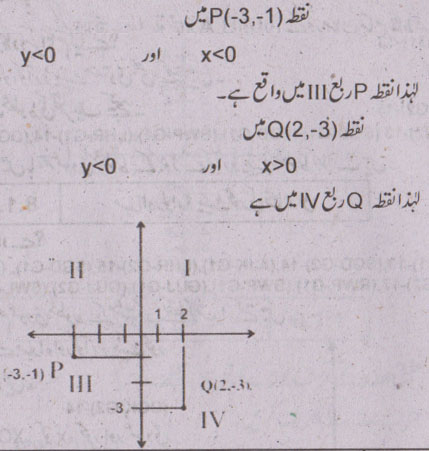 نقطہ P(-3,-1) میں
x<0 اور y<0
لہٰذا نقطہ P ربع III میں واقع ہے۔
نقطہ Q(2,-3) میں
x>0 اور y<0
لہٰذا نقطہ Q ربع IV میں ہے
II
1 2
(-3,-1) P III
Q(2,-3).
-3 IV